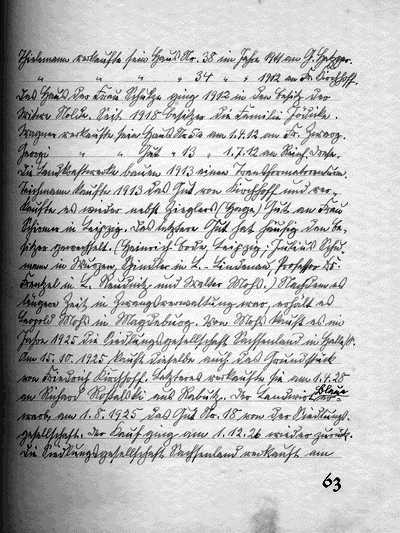 Thielemann verkaufte sein Haus Nr. 38 im Jahre 1901 an G. Hetzger.
" " " " 34 " " 1902 an Fr. Kirchhoff.
Das Haus der Frau Schulze ging 1912 in den Besitz der
Witwe Nolde. Seit 1915 besitzt es die Familie Jödicke.
Wagner verkaufte sein Haus Nr. an 1.4.12 an Fr. Herzog.
Georgi " " Gut " 13 " 1.7.12 an Rich.
Die Landkraftwerke bauen 1913 einen Transformatorenturm.
Teichmann kaufte 1913 das Gut von Kirchhoff und ver-
kaufte es wieder nebst Zieglers (Hage) Gut an Frau
Schirmer in Leipzig. Das letztere Gut hat häufig den Be-
sitzer gewechselt. (Heinrich Bode, Leipzig, Julius
mann in Wurzen, Günther in L.-Lindenau, Professor Dr.
Frenzel in L. Reudnitz und Walter Moss.) Nachdem es
längere Zeit in Zwangsverwaltung war, erhält es
Leopold Moss in Magdeburg. Von Moss kauft es im
Jahre 1925 die Siedlungsgesellschaft Sachsenland in
Am 15.10.1925 kauft dieselbe auch das Grundstück
von Friedrich Kirchhoff. Letzteres verkaufte sie am 1.4.28
an Richard aus Rabutz. Der Landwirt Blaue er-
warb am 1.8.1925 das Gut Nr. 18 von der Siedlungs-
gesellschaft. Der Kauf ging am 1.12.26 wieder zurück.
Die Siedlungsgesellschaft Sachsenland verkauft am
63